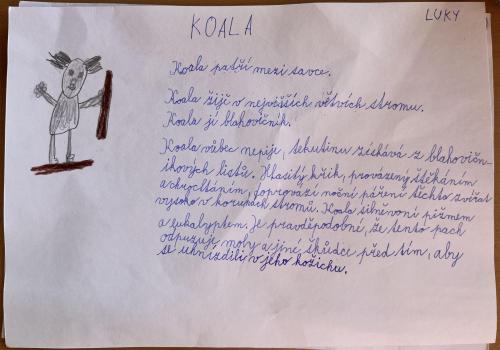 LUKY
KOALA
Koala patří mezi savce.
Koala žije v nejvišších větvích stromu.
Koala jí blahovičník.
Koala vůbec nepije, tekutinu získává z blahovični-
kových listů. Hlasitý křik, provázený štěkáním
a chrochtáním, doprovází noční páření těchto zvířat
vysoko v korunách stromů. Koala silně voní pižmem
a eukalyptem. Je pravděpodobné, že tento pach
odpuzuje moly a jiné škůdce před tím, aby
se uhnízdili v jeho kožichu.